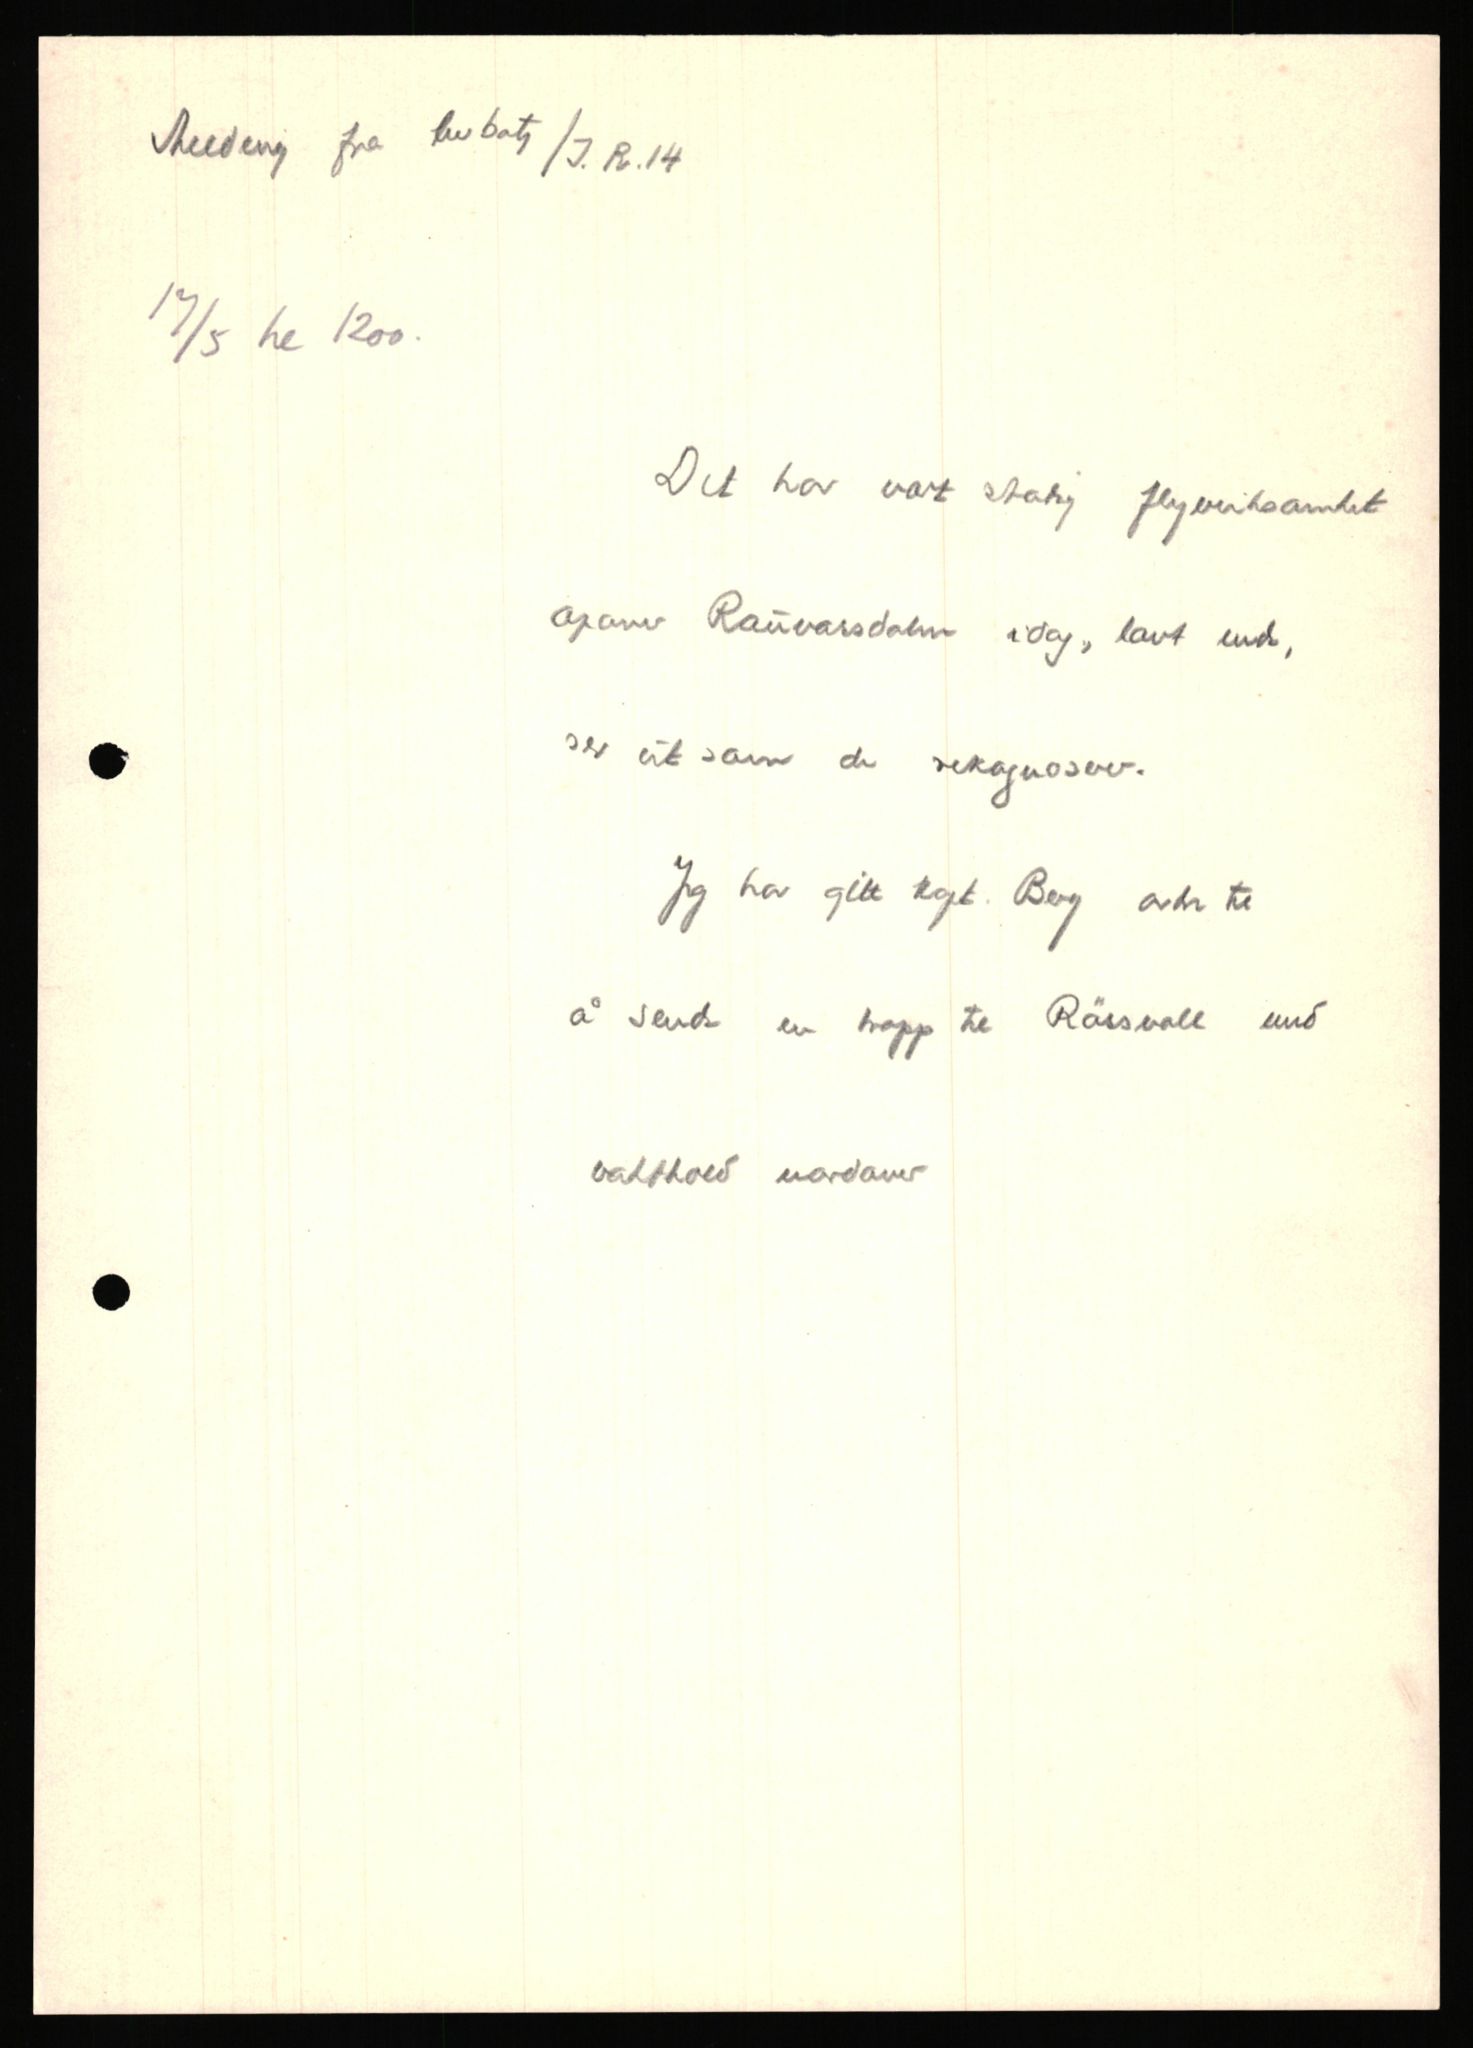 Melding fra lwbatj/I.R.14
17/5 kl 1200.
Det har vært stadig flyvirksomhet
opover Raüvassdalen idag, lavt nede,
ser üt som de rekognoserer.
Jeg har gitt kapt. Berg ordre til
å sende en tropp til Rössvoll med
vakthold nordover